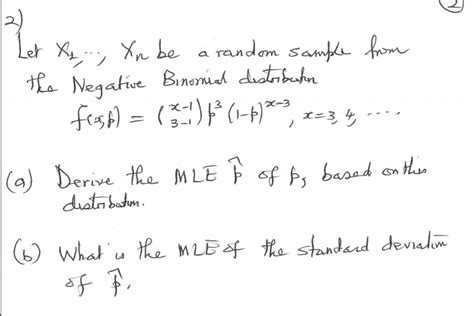 2)
2
Let X1, ..., Xn be a random sample from
the Negative Binomial distribution
f(x;p) = (x-1 3-1) p^3 (1-p)^x-3, x=3,4, ....
(a) Derive the MLE p̂ of p, based on this
distribution.
(b) What is the MLE of the standard deviation
of p̂.